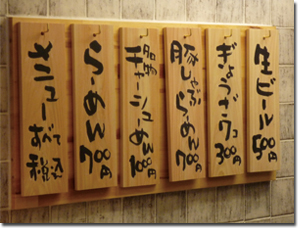 生ビール 500円
ぎょうざ 7コ 300円
豚しゃぶ
らーめん 700円
名物
チャーシューめん
らーめん 700円
メニューすべて
税込